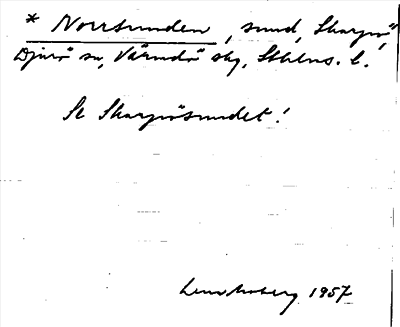 * Norrsunden, sund, Skarpö,
Djurö sn, Värmdö skg, Sthlms. l.
Se Skarpösundet!
1957